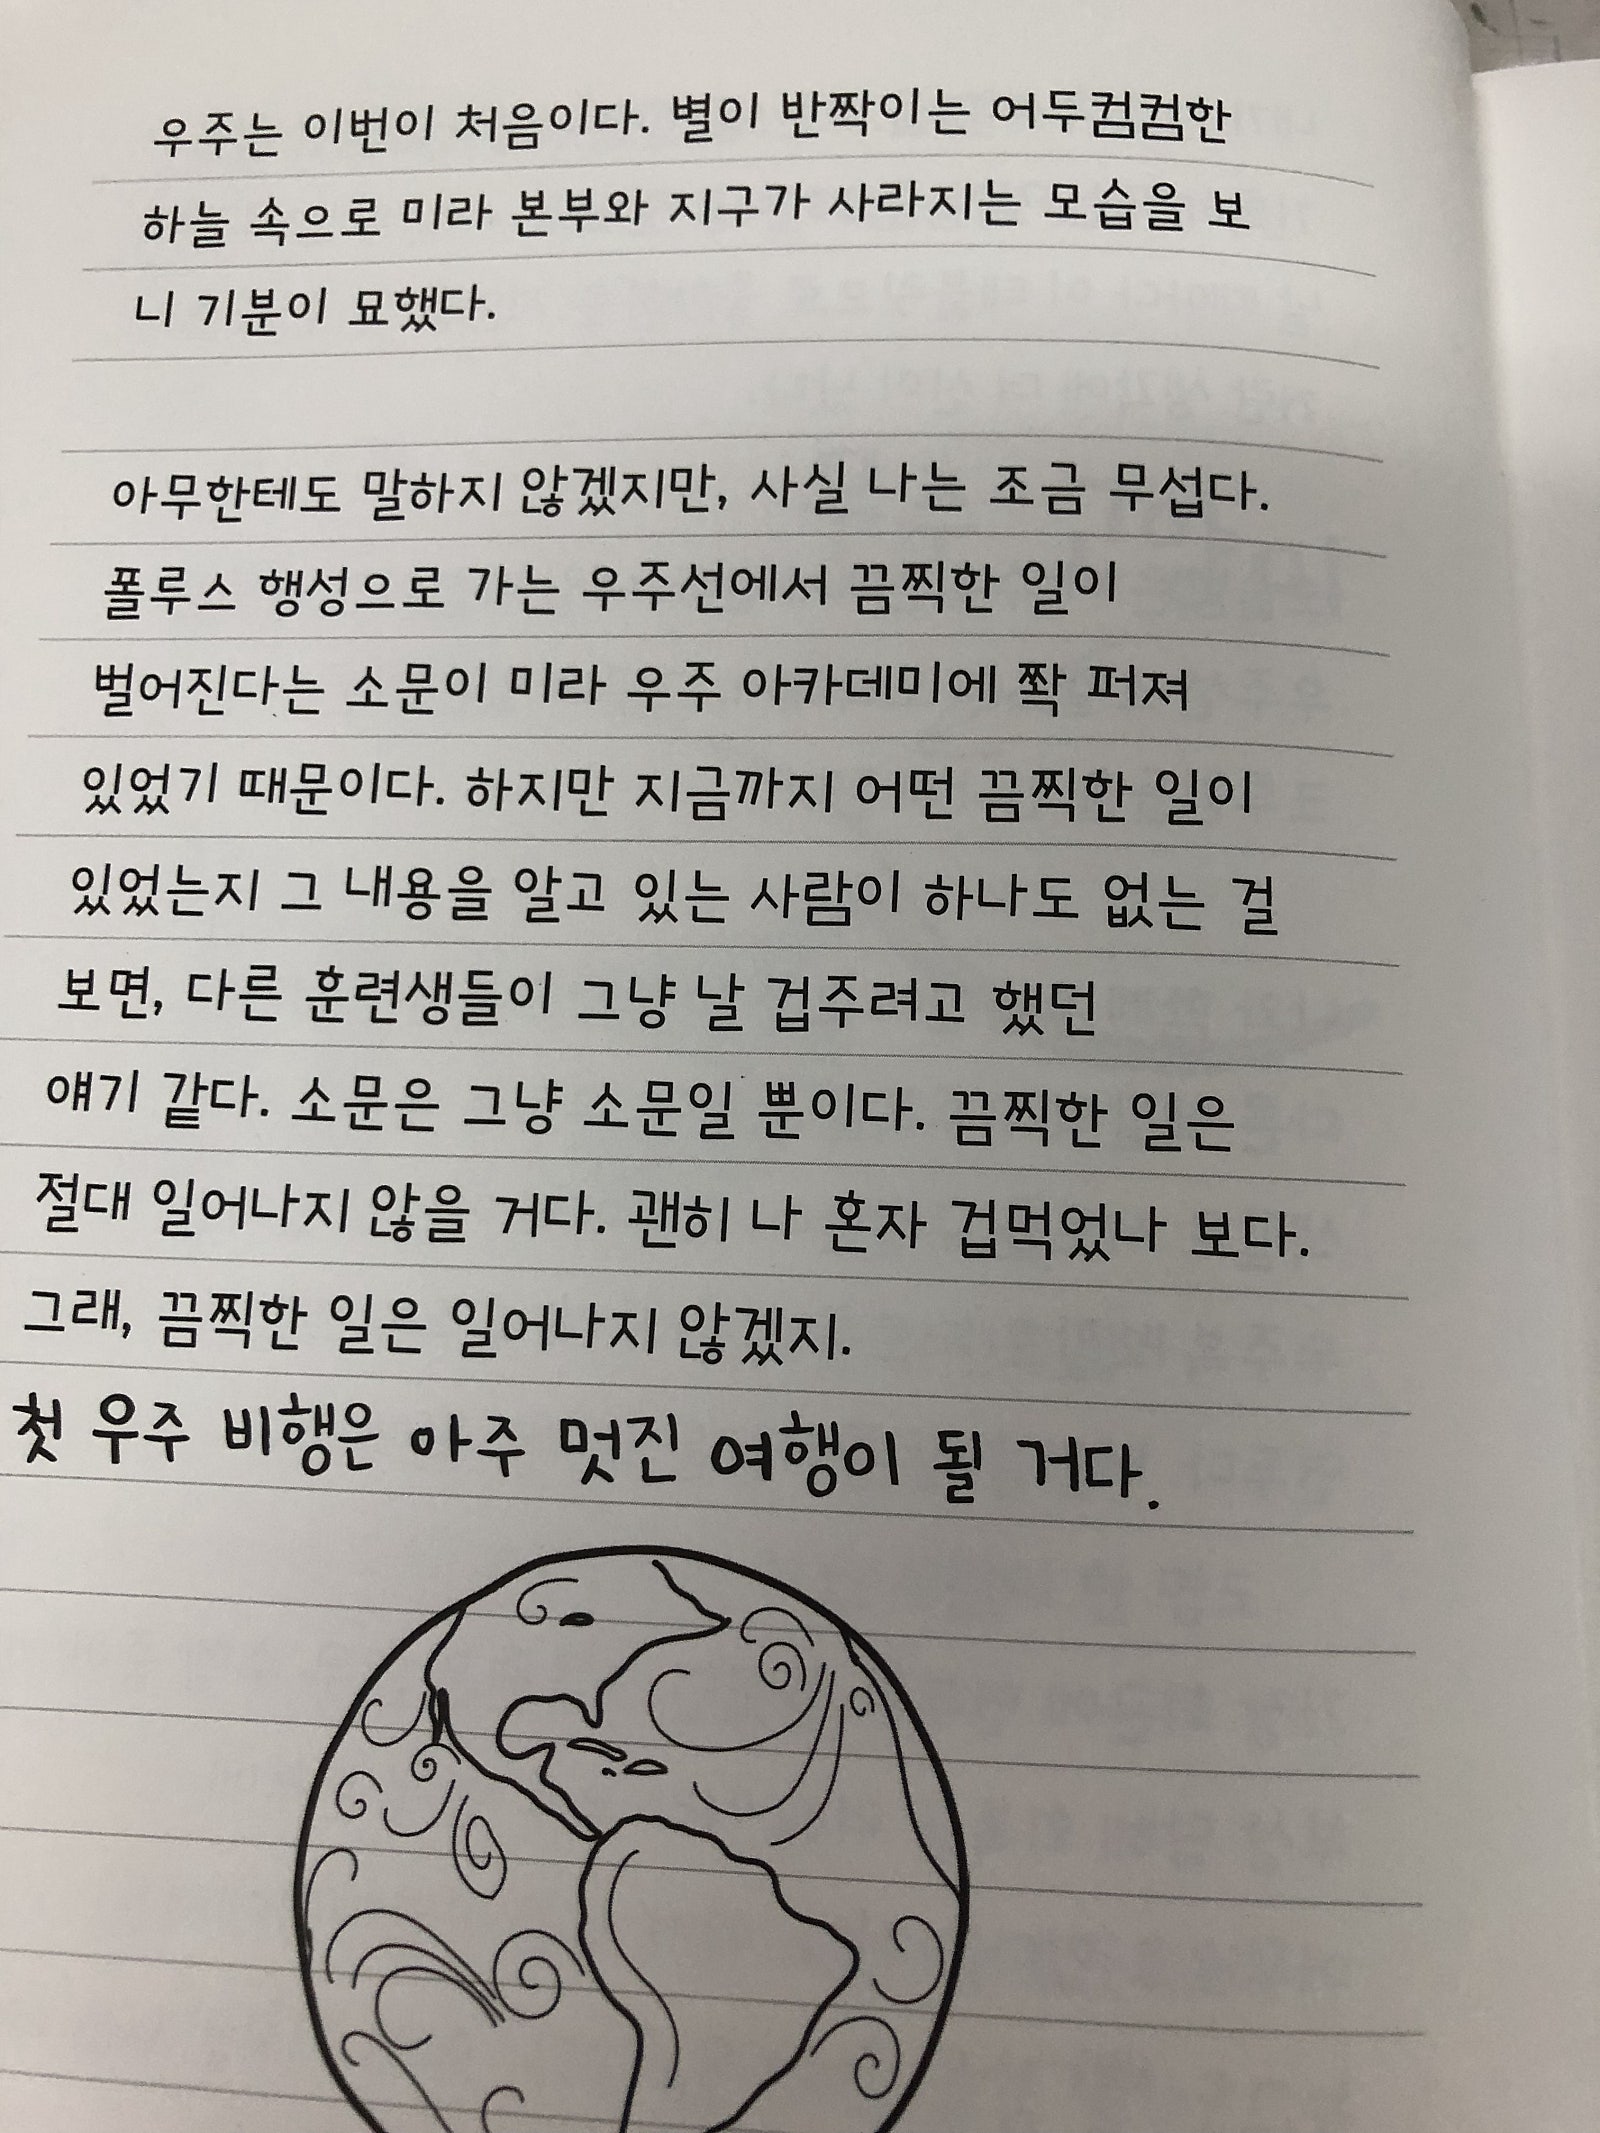 우주는 이번이 처음이다. 별이 반짝이는 어두컴컴한
하늘 속으로 미라 본부와 지구가 사라지는 모습을 보
니 기분이 묘했다.
아무한테도 말하지 않겠지만, 사실 나는 조금 무섭다.
폴루스 행성으로 가는 우주선에서 끔찍한 일이
벌어진다는 소문이 미라 우주 아카데미에 쫙 퍼져
있었기 때문이다. 하지만 지금까지 어떤 끔찍한 일이
있었는지 그 내용을 알고 있는 사람이 하나도 없는 걸
보면, 다른 훈련생들이 그냥 날 겁주려고 했던
얘기 같다. 소문은 그냥 소문일 뿐이다. 끔찍한 일은
절대 일어나지 않을 거다. 괜히 나 혼자 겁먹었나 보다.
그래, 끔찍한 일은 일어나지 않겠지.
첫 우주 비행은 아주 멋진 여행이 될 거다.